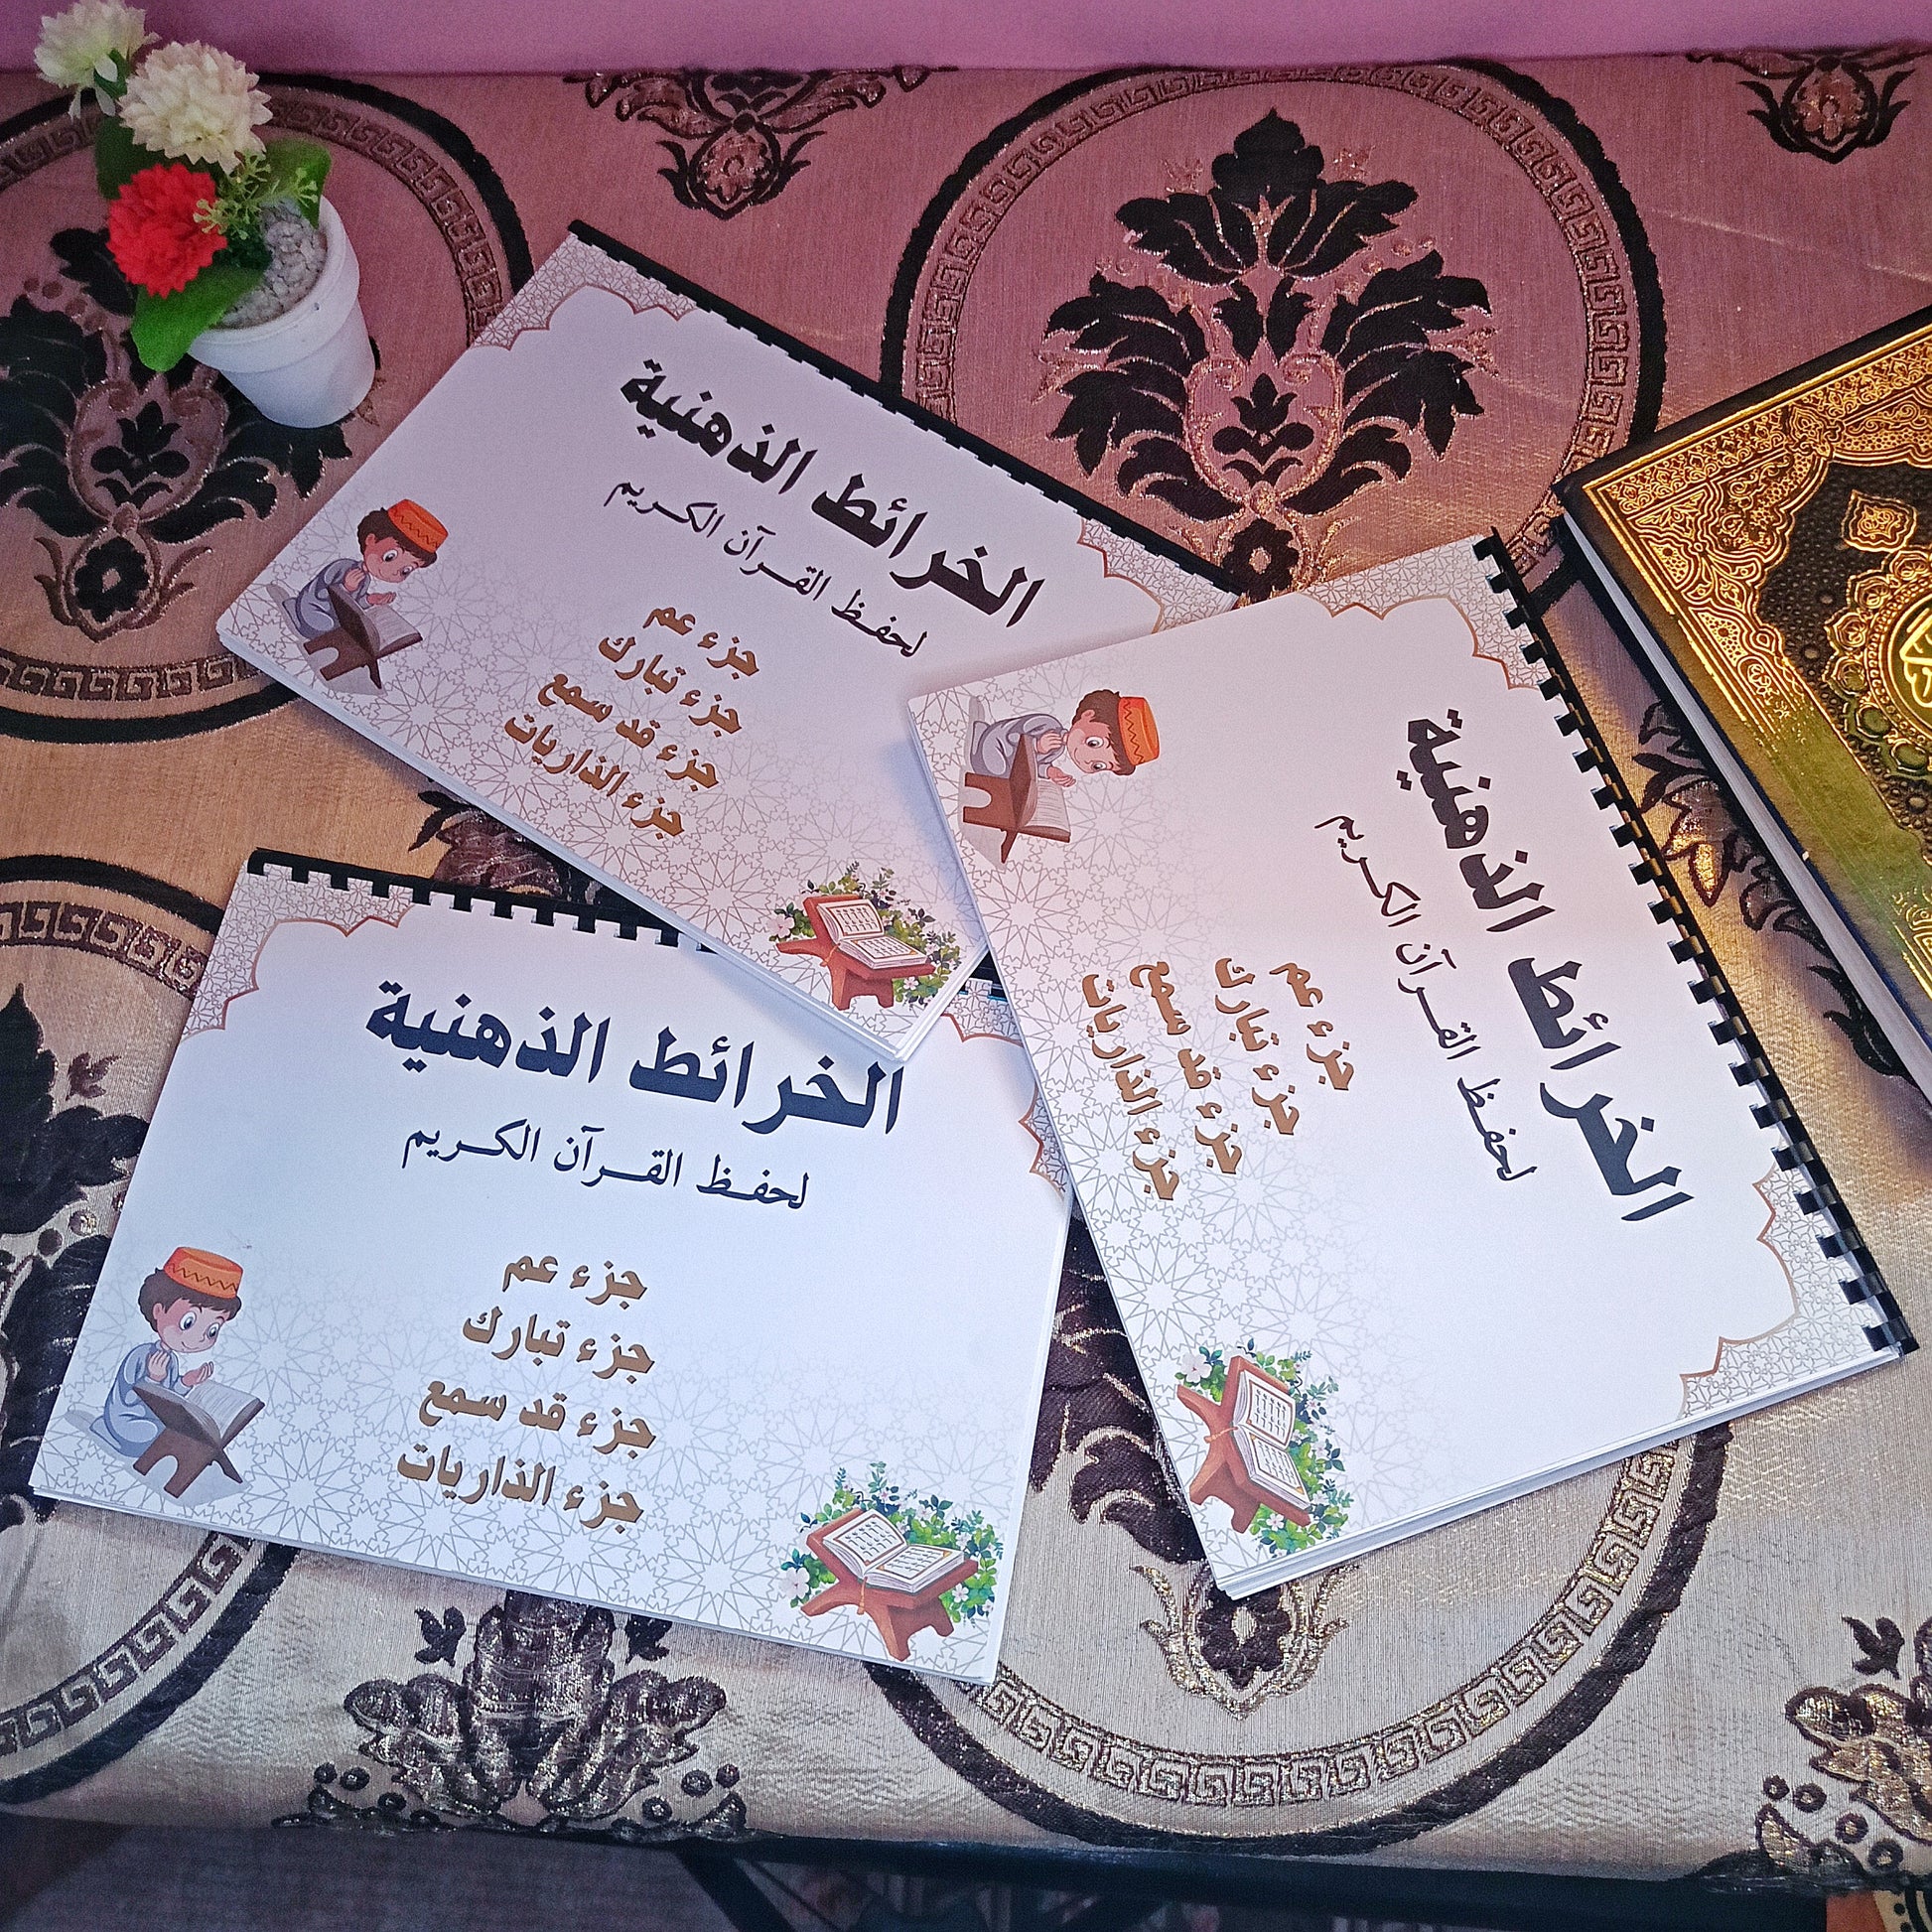 الخرائط الذهنية
لحفظ القرآن الكريم
جزء عم
جزء تبارك
جزء قد سمع
جزء الذاريات
الخرائط الذهنية
لحفظ القرآن الكريم
جزء عم
جزء تبارك
جزء قد سمع
جزء الذاريات
الخرائط الذهنية
لحفظ القرآن الكريم
جزء عم
جزء تبارك
جزء قد سمع
جزء الذاريات